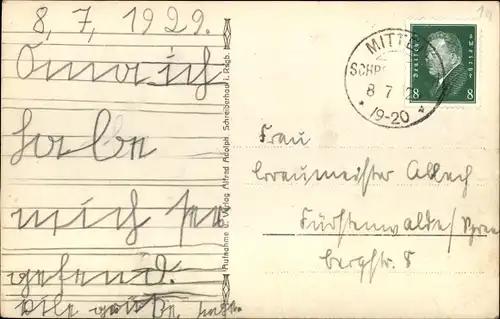 8, 7, 1929.
Oma ich
habe
mich
gefend.
viele grüße
Aufnahme u. Verlag Alfred Adolph, Schreiberhau i. Rsgb.
MITTEL
8 7
19-20
Deutsches Reich
8 8
Frau
Braumeister
Fürstenwalde/Spree
Bergstr. 8